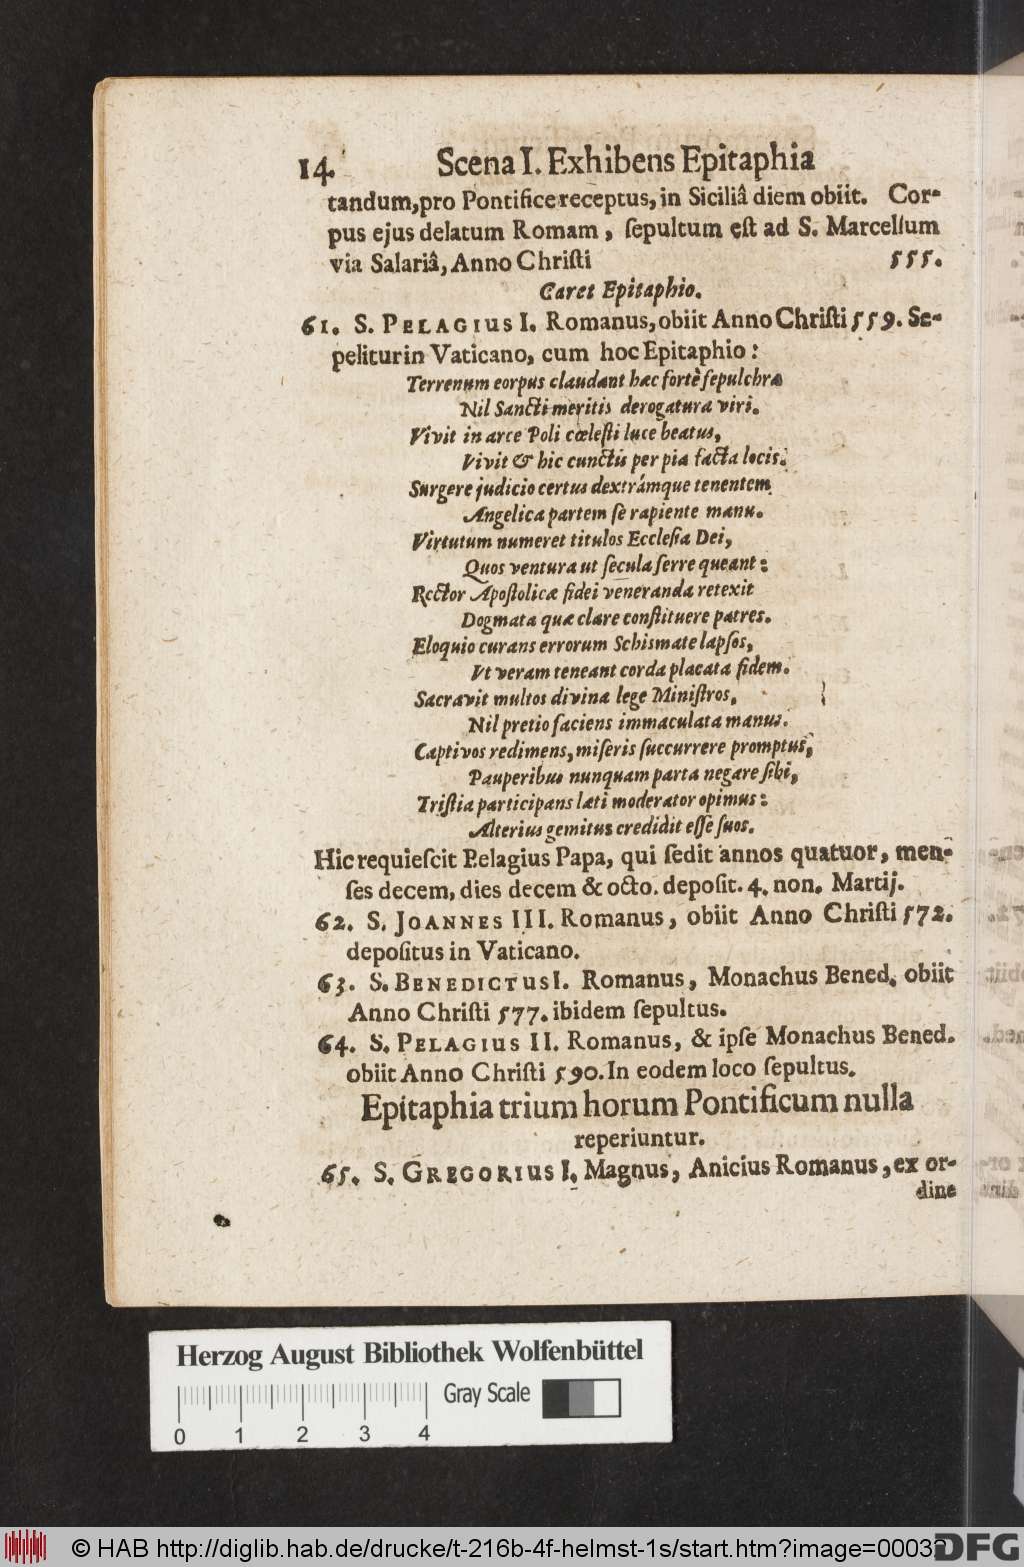 14. Scena I. Exhibens Epitaphia
tandum, pro Pontifice receptus, in Siciliâ diem obiit. Cor-
pus ejus delatum Romam, sepultum est ad S. Marcellum
via Salariâ, Anno Christi 555.
Caret Epitaphio.
61. S. PELAGIUS I. Romanus, obiit Anno Christi 559. Se-
peliturin Vaticano, cum hoc Epitaphio:
Terrenum eorpus claudant hæc fortè sepulchra
Nil Sancti meritis derogatura viri.
Vivit in arce Poli cœlesti luce beatus,
Vivit & hic cunctis per pia facta locis.
Surgere judicio certus dextrámque tenentem
Angelica partem se rapiente manu.
Virtutum numeret titulos Ecclesia Dei,
Quos ventura ut secula ferre queant:
Rector Apostolicæ fidei veneranda retexit
Dogmata quæ clare constituere patres.
Eloquio curans errorum Schismate lapsos,
Ut veram teneant corda placata fidem.
Sacravit multos divina lege Ministros,
Nil pretio faciens immaculata manus.
Captivos redimens, miseris succurrere promptus,
Pauperibus nunquam parta negare sibi,
Tristia participans læti moderator opimus:
Alterius gemitus credidit esse suos.
Hic requiescit Pelagius Papa, qui sedit annos quatuor, men-
ses decem, dies decem & octo. deposit. 4. non. Martij.
62. S. JOANNES III. Romanus, obiit Anno Christi 572.
depositus in Vaticano.
63. S. BENEDICTUS I. Romanus, Monachus Bened. obiit
Anno Christi 577. ibidem sepultus.
64. S. PELAGIUS II. Romanus, & ipse Monachus Bened.
obiit Anno Christi 590. In eodem loco sepultus.
Epitaphia trium horum Pontificum nulla
reperiuntur.
65. S. GREGORIUS I. Magnus, Anicius Romanus, ex or-
dine
Herzog August Bibliothek Wolfenbüttel
Gray Scale
0 1 2 3 4
© HAB http://diglib.hab.de/drucke/t-216b-4f-helmst-1s/start.htm?image=00032
DFG